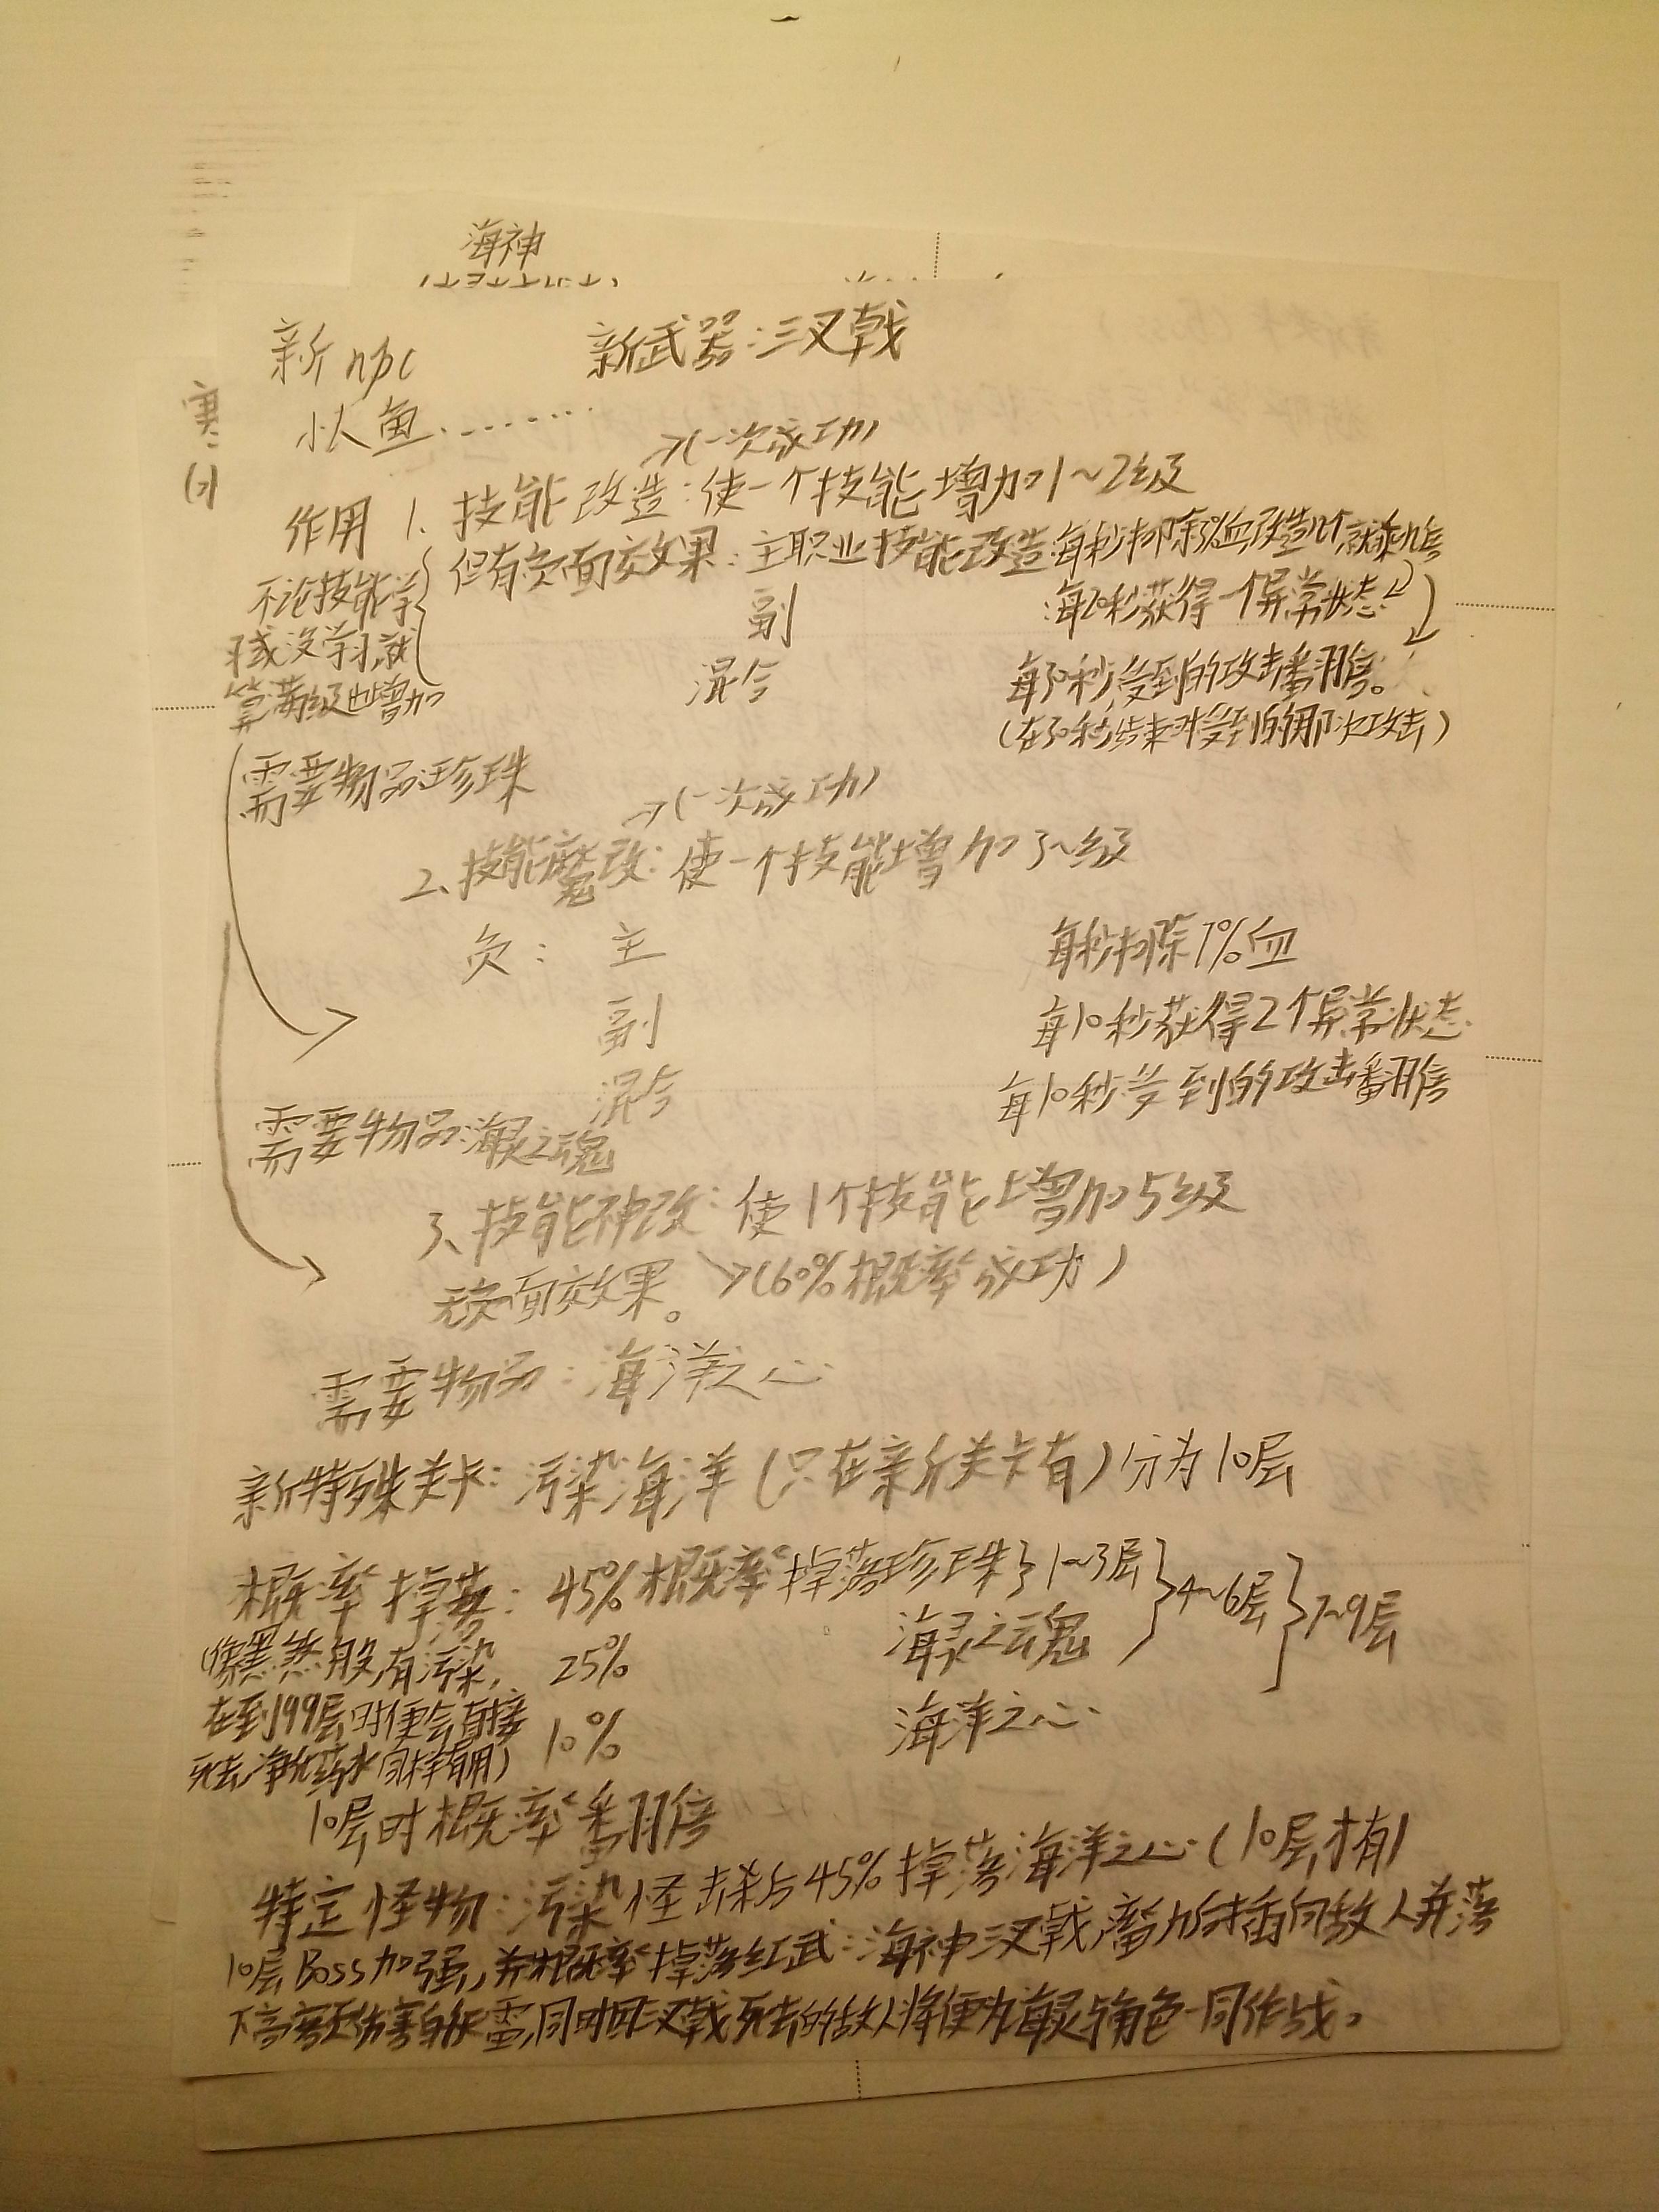 海神
新npc 新武器:三叉戟
小人鱼........
→(一次成功)
作用 1. 技能改造:使一个技能增加1~2级
但有负面效果:主职业技能改造:每秒扣除 血,改造几个就乘几倍
副 :每20秒获得一个异常状态
混合 每30秒,受到的攻击翻倍。
(在30秒结束时受到的那次攻击)
不论技能学
习或没学习,就
算满级也增加
需要物品:珍珠
→(一次成功)
2、技能魔改:使一个技能增加3~级
负: 主 每秒扣除7%血
副 每10秒获得2个异常状态
混合 每10秒受到的攻击翻倍
需要物品:海灵之魂
3、技能神改:使1个技能增加5级
无负面效果。→(60%概率成功)
需要物品:海洋之心
新特殊关卡:污染海洋(只在新关卡有)分为10层
概率掉落:45%概率掉落珍珠}1~3层}4~6层}7~9层
25% 海灵之魂
10% 海洋之心
(像黑 然一般,有污染,
在到199层时便会直接
死去,净化药水同样有用)
10层时概率翻倍
特定怪物:污染怪击杀后45%掉落海洋之心(10层才有)
10层Boss加强,并概率掉落红武:海神三叉戟,蓄力时插向敌人并落
下高额伤害 雷,同时因三叉戟死去的敌人将便为海灵与角色一同作战。
寒